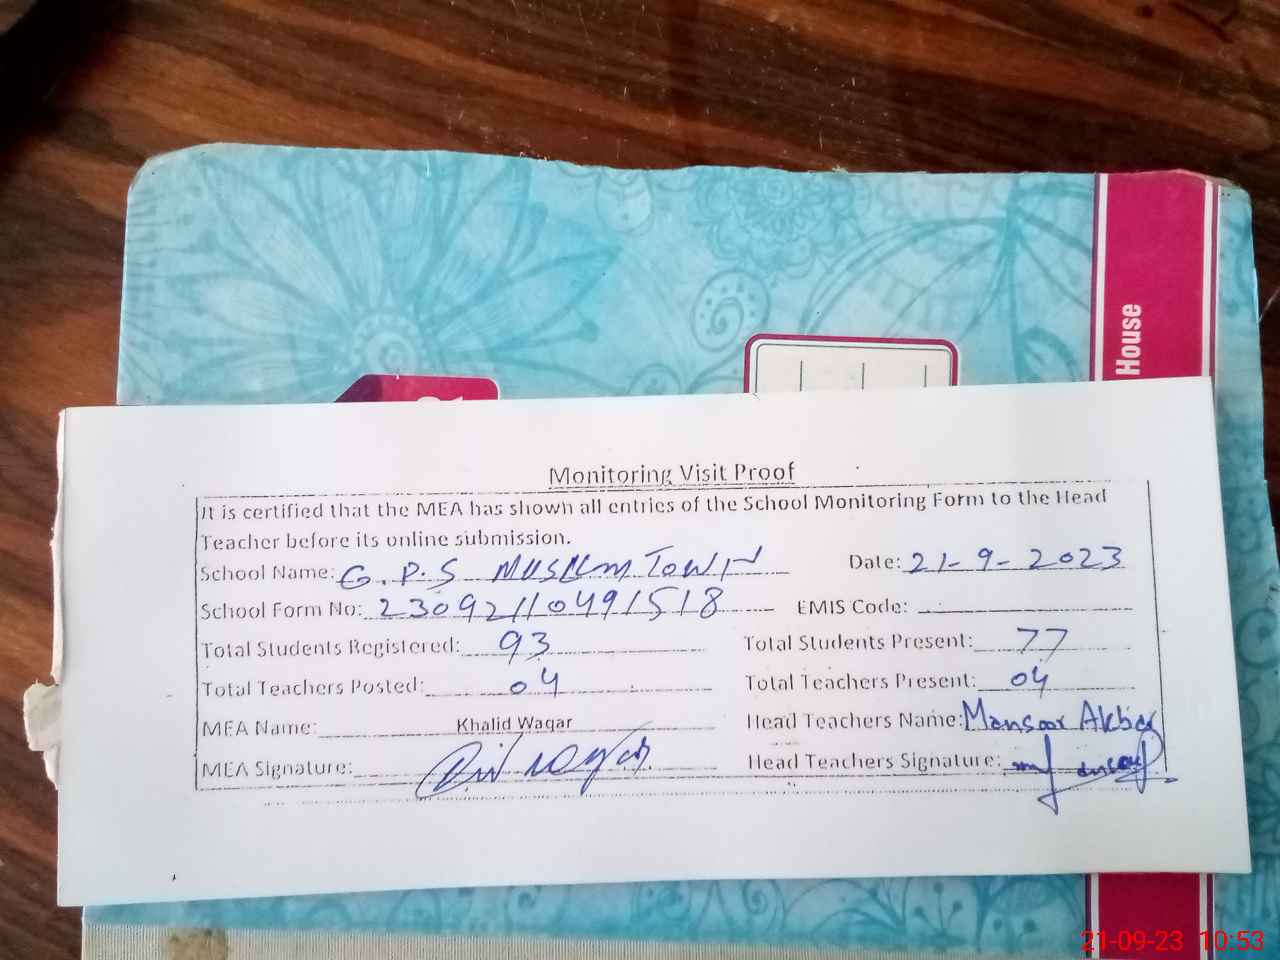 House
Monitoring Visit Proof
It is certified that the MEA has shown all entries of the School Monitoring Form to the Head
Teacher before its online submission.
School Name: G.P.S MUSLIM TOWN Date: 21-9-2023
School Form No: 23092110491518 EMIS Code:
Total Students Registered: 93 Total Students Present: 77
Total Teachers Posted: 04 Total Teachers Present: 04
MEA Name: Khalid Waqar Head Teachers Name: Mansoor Akbar
MEA Signature: Head Teachers Signature:
21-09-23 10:53